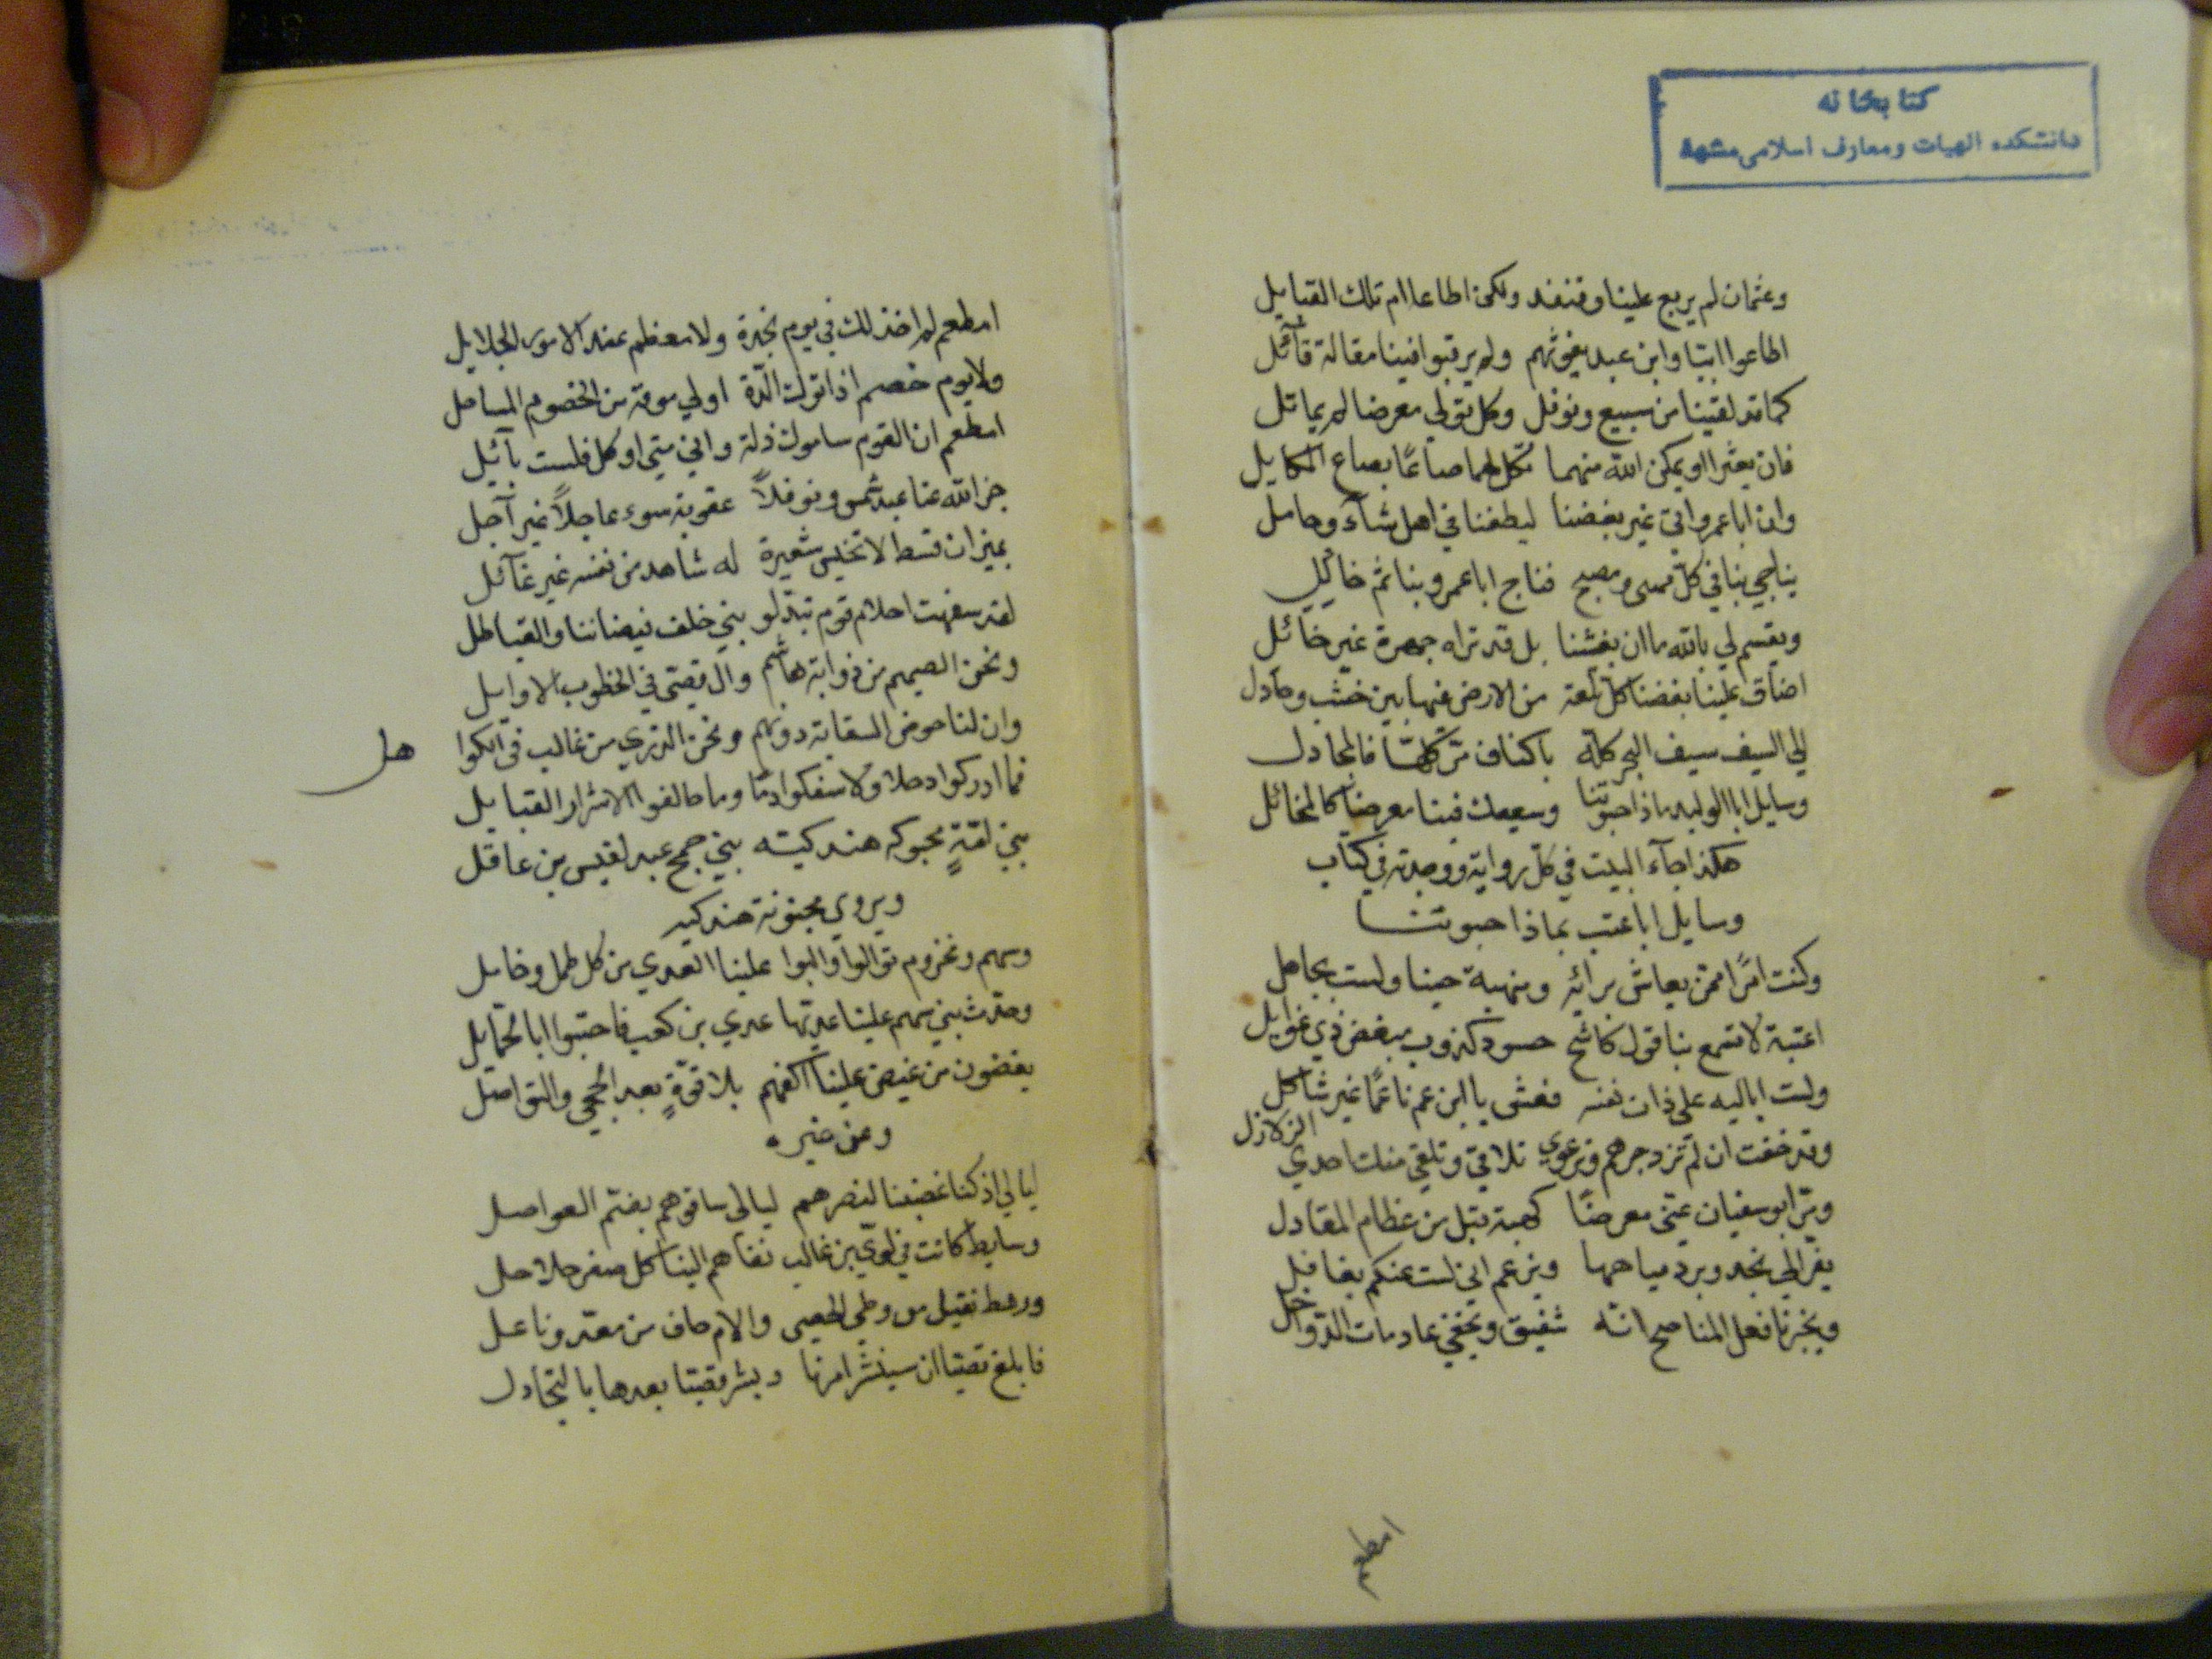 كتابخانه
دانشكده الهيات ومعارف اسلامى مشهد
وعثمان لم يربع علينا وقنفذ ولكن اطاعا امر تلك القبايل
اطاعوا ابيا وابن عبد يغوثهم ولم يرقبوا فينا مقالة قآئل
كما قد لقينا من سبيع ونوفل وكل تولى معرضا لم يماتل
فان يعثرا او يمكن الله منهما نكل لهما صاعًا بصاع المكايل
وان ابا عمرو ابى غير بغضنا ليظعننا في اهل شآء وحامل
يناجي بنا في كلّ ممسى ومصبح فناج ابا عمرو بنا ثم خاتل
ويقسم لي بالله ما ان يغشنا بل قد تراه جهرة غير خائل
اضاق علينا بغضنا كل تلعة من الارض فيها بين خشب وجادل
الي السيف سيف البحر كلّه باكناف كلها فالمجادل
وسايل ابا الوليد ماذا حبوتنا وسعيك فينا معرضا كالمخائل
هكذا جآء البيت في كلّ رواية ووجدته في كتاب
وسايل ابا عتب بماذا حبوتنا
وكنت امرًا ممّن يعاش برائه ومنهبة حينا ولست بجاهل
اعتبة لا تسمع بنا قول كاشح حسود كذوب مبغض ذي غوايل
ولست اباليه على ذات نفسه فعش يا ابن عم ناعمًا غير شاكل
وقد خفت ان لم تزدجرهم وترعوي تلاقي وتلقي منك احدي الزلازل
ومرّ ابو سفيان عنّي معرضًا كهبة قبل من عظام المقادل
يفرّ الي نجد وبرد مياهها ويزعم اني لست عنكم بغافل
ويخبرنا فعل المناصح انّه شفيق ويخفي عادمات الدّواخل
امطعم
امطعم لم اخذلك في يوم نجدة ولا معظم عند الامور الجلايل
ولا يوم خصم اذا توك الدّة اولي من الخصوم المساحل
امطعم ان القوم ساموك ذلة واني متي اوكل فلست بآئيل
جزا الله عنا عبد شمس ونوفلاً عقوبة سوء عاجلاً غير آجل
بميزان قسط لا تخيس شعيرة له شاهد من نفسه غير عآئل
لقد سفهت احلام قوم تبدّلو بني خلف قيضا بنا والقياطل
ونحن الصميم من ذوابة هاشم وال قصيّ في الخطوب الاوايل
وان لنا حوض السقاية دونهم ونحن الذري من غالب في الكوا هل
فما ادركوا دحلا ولا سفكوا دمًا وما حالفوا الا شرار القبايل
بني امّةٍ محبوكه هندكيته بني جمح عبد لقيس بن عاقل
ويروي مجنونة هندكيه
وسهم ومخزوم توالوا والبوا علينا العدي من كل طمل وخامل
وحدث بني سهم علينا عديّها عدي بن كعب فاحتبوا ابا لحمايل
يعضون من غيض علينا اكفهم بلا ترّةٍ بعد الحجي والتواصل
وعن غيره
ليالي اذ كنا غضبنا لنصرهم ليالي ساقوهم بضمّ العواصل
وسايط كانت في لويّ بن غالب نفاهم الينا كل صقر حلاحل
ورهط نفيل من وطي الحصي والام حاف من معدّ وناعل
فابلغ قصيا ان سينشر امرنا وبشر قصيا بعدها بالتجادل